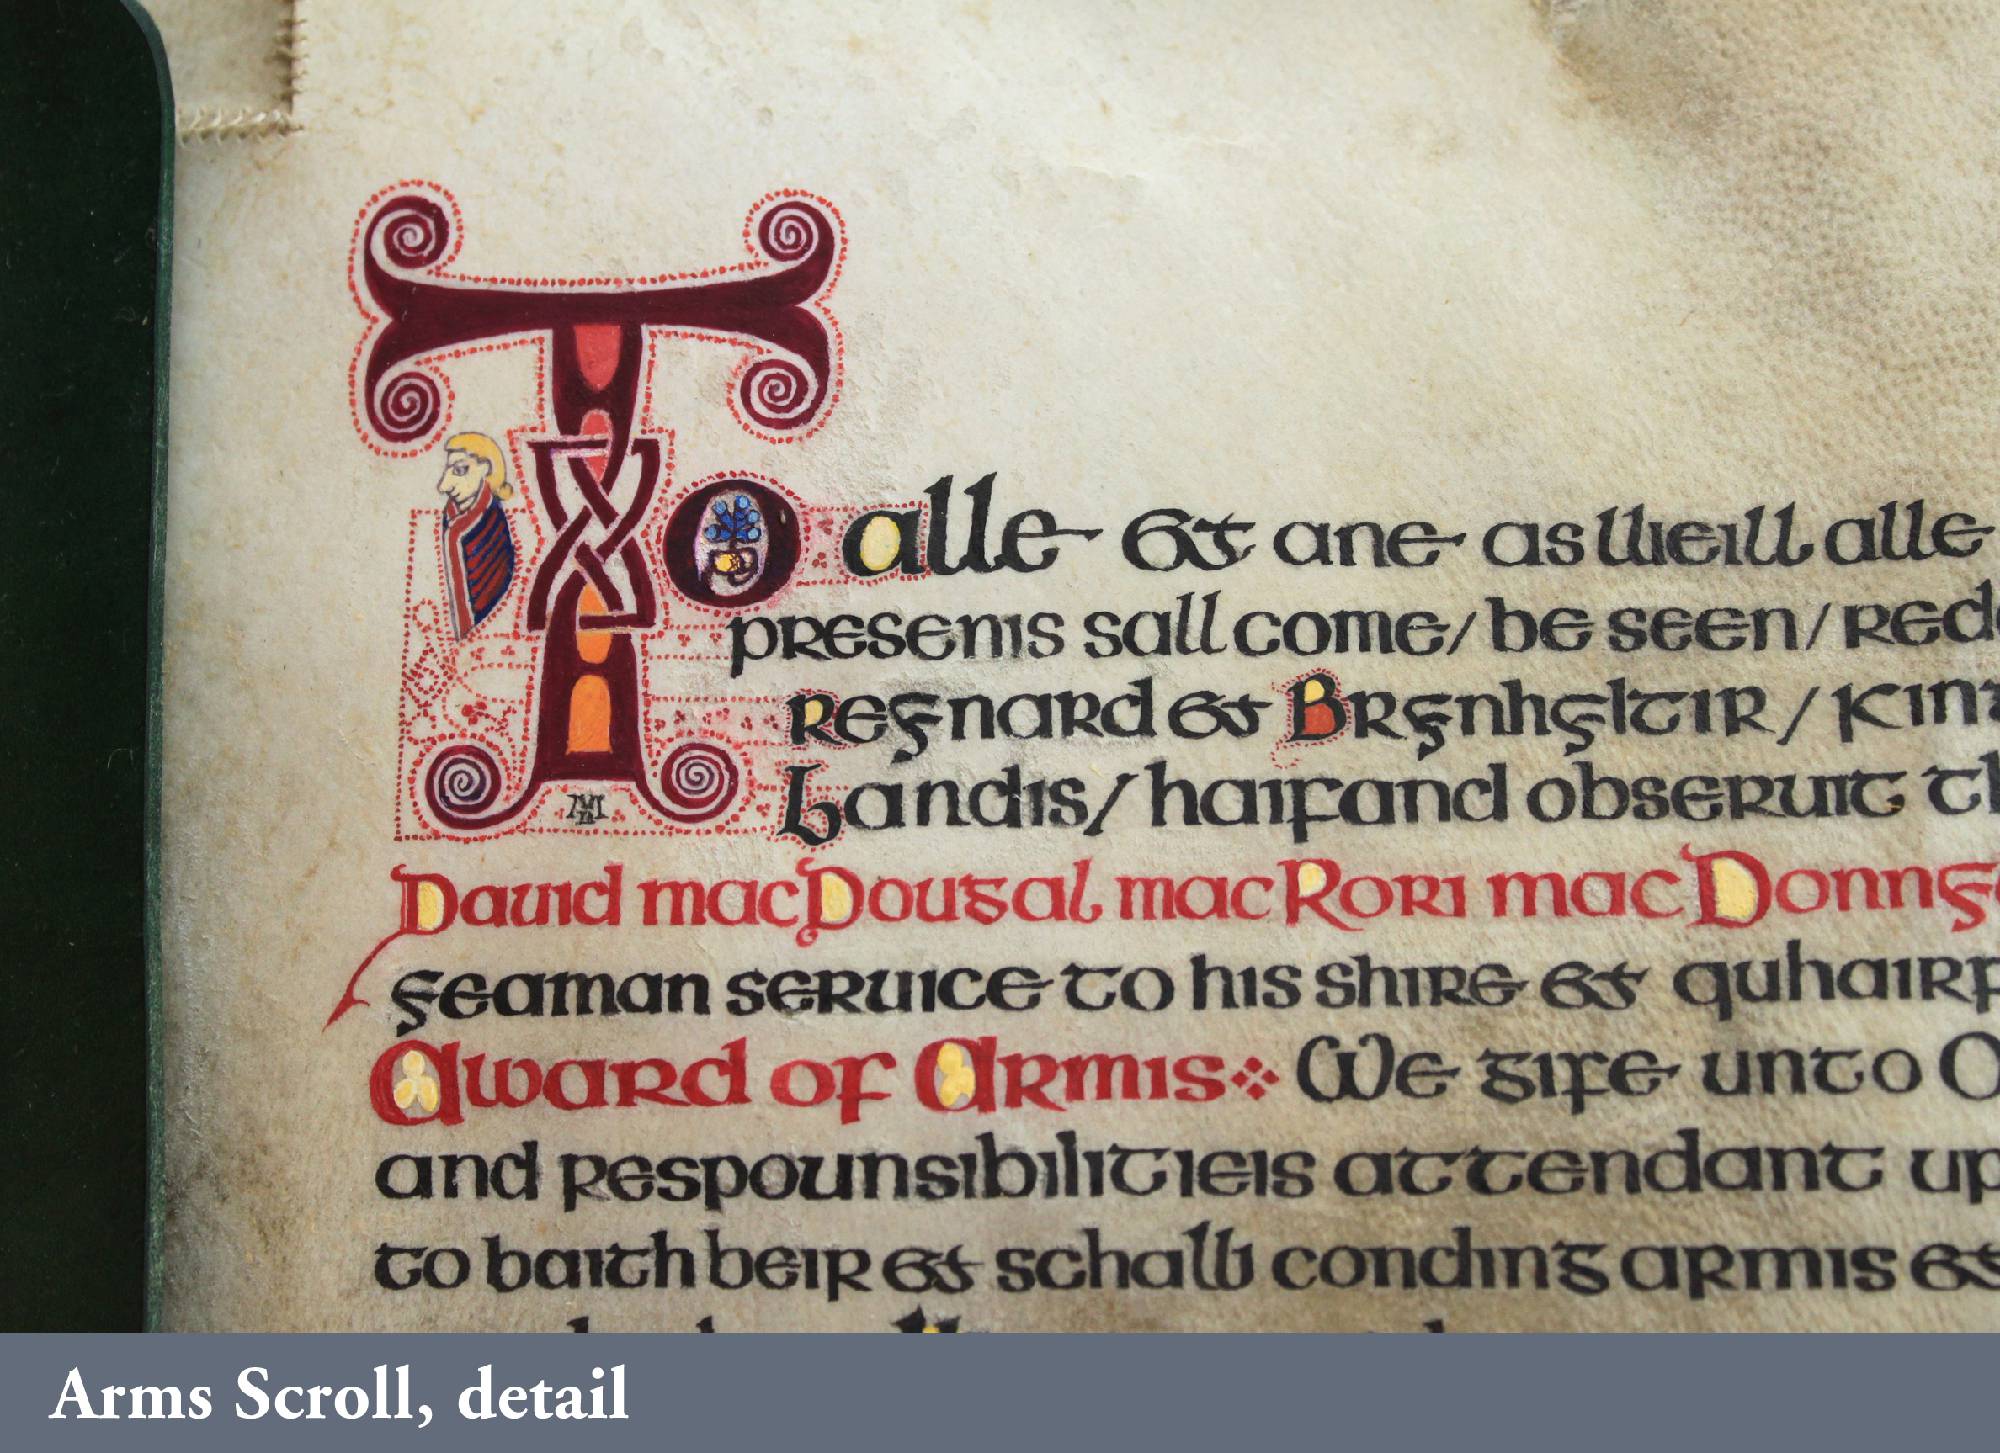 To alle & ane as weill alle
presents sall come/be seen/red
Regnard & Brgnhgltir/Kin
Landis/haifand obseruit th
Dauid macDougal macRori macDonng
geaman seruice to his shire & quhairf
Award of Armis We gife unto O
and respounsibilitieis attendant up
to baith beir & schaw conding armis &
Arms Scroll, detail